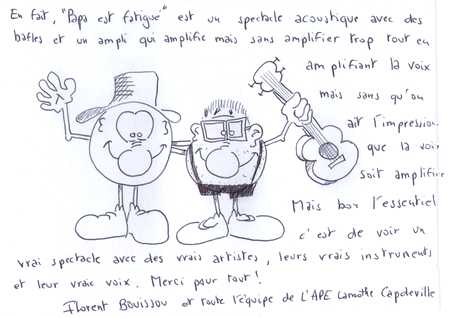 En fait, "Papa est fatigué" est un spectacle acoustique avec des
bafles et un ampli qui amplifie mais sans amplifier trop tout en
amplifiant la voix
mais sans qu'on
ait l'impression
que la voix
soit amplifiée
Mais bon l'essentiel
c'est de voir un
vrai spectacle avec des vrais artistes, leurs vrais instruments
et leur vraie voix. Merci pour tout !
Florent Bouissou et toute l'équipe de L'APE Lamothe Capdeville